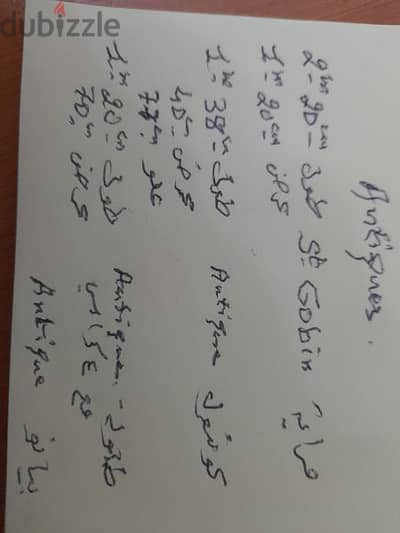 dubizzle
Antiques.
2m 20cm طول St Gobin مراية
1m 20cm عرض
1m 38cm طول Antique كونسول
40cm عرض
77cm علو
1m 20cm طول Antiques - طاولة
70cm عرض
Antique بيانو